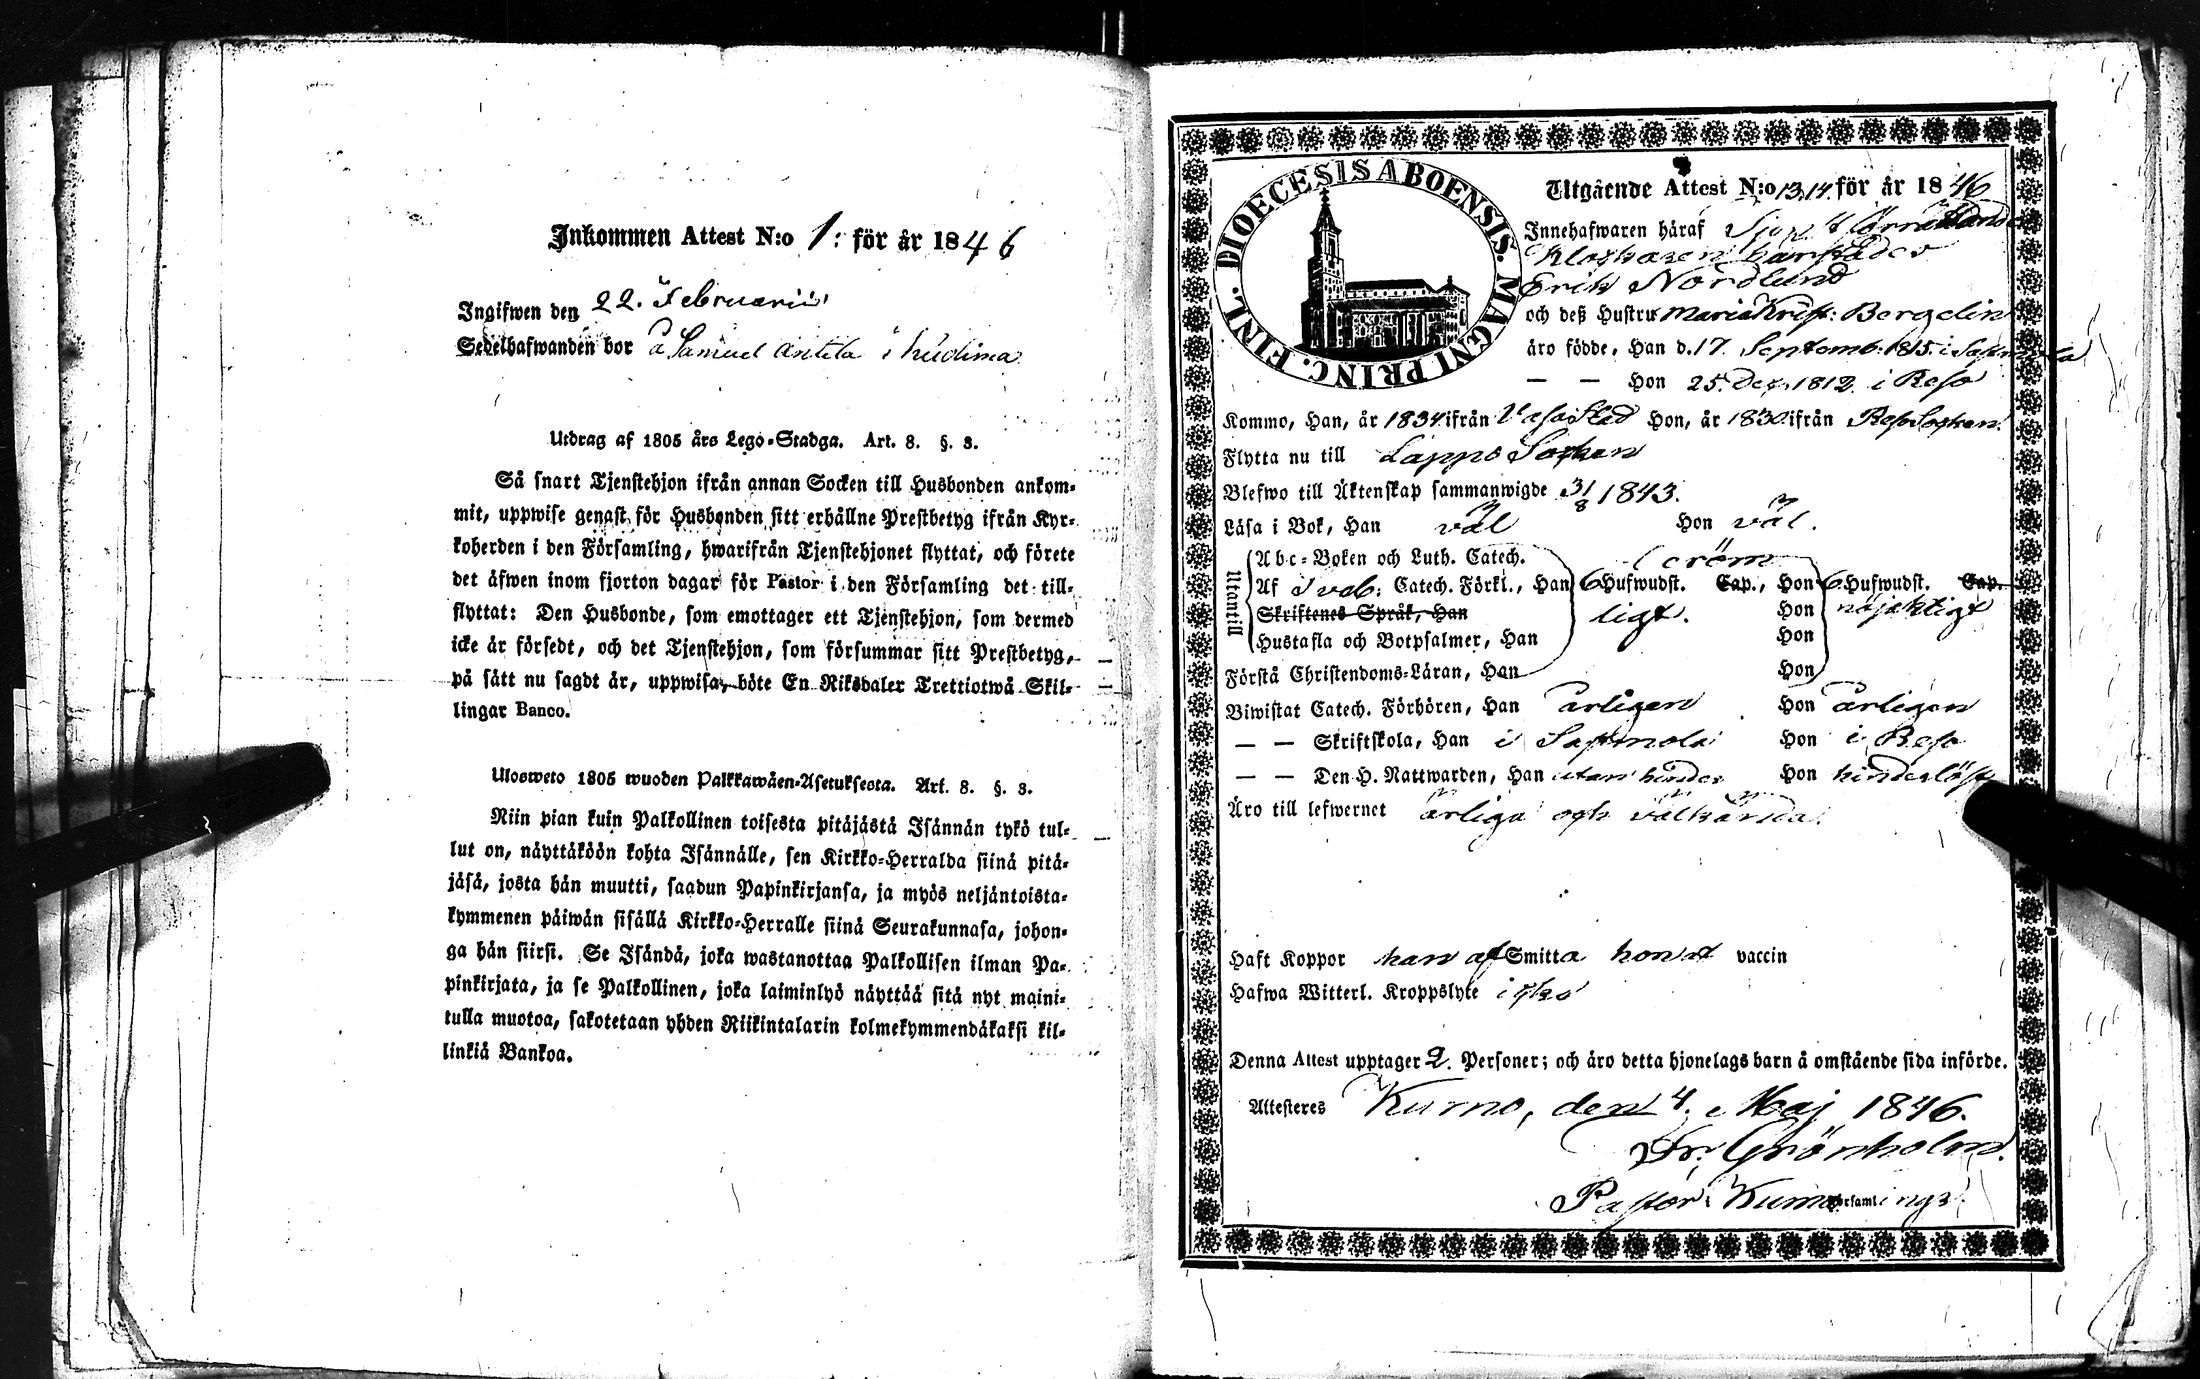 Inkommen Attest N:o 1: för år 1846
Ingifwen den 22. Februarii
Sedelhafwanden bor å Samuel Antila i
Utdrag af 1805 års Lego-Stadga. Art. 8. §. 3.
Så snart Tjenstehjon ifrån annan Socken till Husbonden ankom-
mit, uppwise genast för Husbonden sitt erhållne Prestbetyg ifrån Kyr-
koherden i den Församling, hwarifrån Tjenstehjonet flyttat, och förete
det äfwen inom fjorton dagar för Pastor i den Församling det till-
flyttat: Den Husbonde, som emottager ett Tjenstehjon, som dermed
icke är försedt, och det Tjenstehjon, som försummar sitt Prestbetyg,
på sätt nu sagdt är, uppwisa, böte En Riksdaler Trettiotwå Skil-
lingar Banco.
Ulosweto 1805 wuoden Palkkawäen-Asetuksesta. Art. 8. §. 3.
Niin pian kuin Palkollinen toisesta pitäjästä Isännän tykö tul-
lut on, näyttäköön kohta Isännälle, sen Kirkko-Herralda siinä pitä-
jäsä, josta hän muutti, saadun Papinkirjansa, ja myös neljäntoista-
kymmenen päiwän sisällä Kirkko-Herralle siinä Seurakunnasa, johon-
ga hän siirsi. Se Isändä, joka wastanottaa Palkollisen ilman Pa-
pinkirjata, ja se Palkollinen, joka laiminlyö näyttää sitä nyt maini-
tulla muotoa, sakotetaan yhden Riikintalarin kolmekymmendäkaksi kil-
linkiä Bankoa.
DIOECESIS ABOENSIS. MAGNI PRINC. FINL.
Utgående Attest N:o 13.14. för år 1846
Innehafwaren häraf
Erik Nordlund
och deß Hustru Maria Krist: Bergelin
äro födde, Han d. 17. Septemb. 1815. i
— — Hon 25. Dec. 1812. i Reso
Kommo, Han, år 1834 ifrån Vasa Stad Hon, år 1830 ifrån Reso Socken.
Flytta nu till Lappo Socken
Blefwo till Äktenskap sammanwigde 31/8 1843.
Läsa i Bok, Han väl Hon väl.
Utantill
Abc-Boken och Luth. Catech. beröm
Af Sveb: Catech. Förkl., Han 6 Hufwudst. Cap., Hon 6 Hufwudst. Cap.
Skriftenes Språk, Han ligt. Hon nöjaktigt
Hustafla och Botpsalmer, Han Hon
Förstå Christendoms-Läran, Han Hon
Biwistat Catech. Förhören, Han årligen Hon årligen
— — Skriftskola, Han i Hon i Reso
— — Den H. Nattwarden, Han utan hinder Hon hinderlöst
Äro till lefwernet ärliga och välkända.
Haft Koppor han af Smitta hon af vaccin
Hafwa Witterl. Kroppslyte icke
Denna Attest upptager 2. Personer; och äro detta hjonelags barn å omstående sida införde.
Attesteres Kumo, den 4. Maj 1846.
Fr. Grönholm.
Pastor i Kumo Församlings